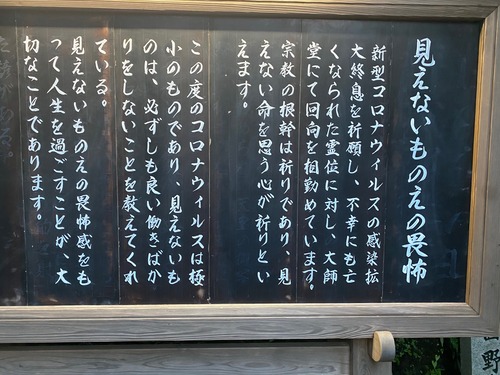 見えないものえの畏怖
新型コロナウィルスの感染拡
大終息を祈願し、不幸にも亡
くなられた霊位に対し、大師
堂にて回向を相勤めています。
宗教の根幹は祈りであり、見
えない命を思う心が祈りとい
えます。
この度のコロナウィルスは極
小のものであり、見えないも
のは、必ずしも良い働きばか
りをしないことを教えてくれ
ている。
見えないものえの畏怖感をも
って人生を過ごすことが、大
切なことであります。
野